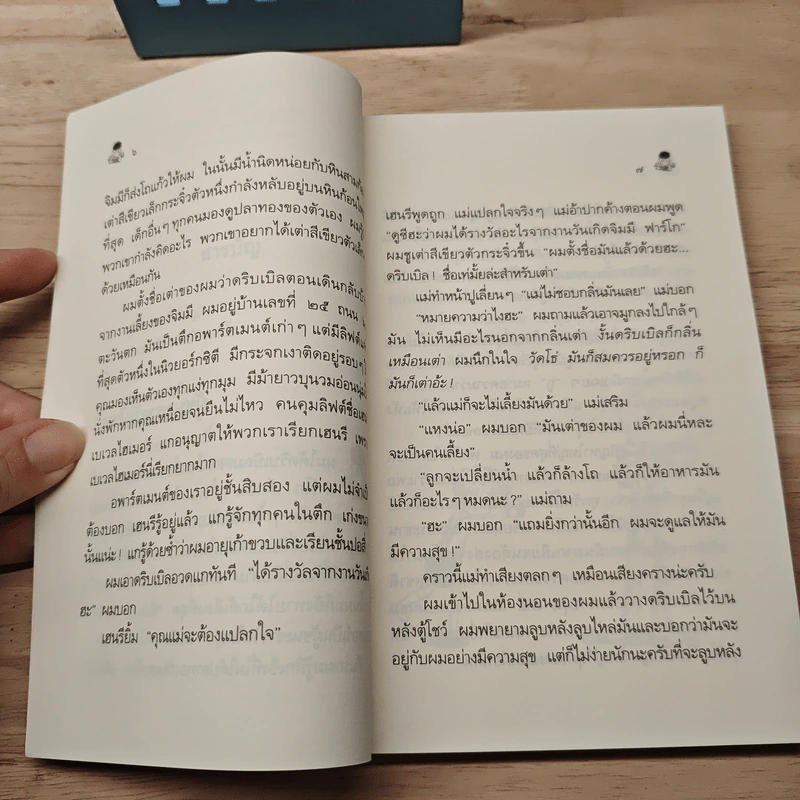 ๖
จิมมีก็ส่งโถแก้วให้ผม ในนั้นมีน้ำนิดหน่อยกับหินสาม
เต่าสีเขียวเล็กกระจิ๋วตัวหนึ่งกำลังหลับอยู่บนหินก้อน
ที่สุด เด็กอื่นๆ ทุกคนมองดูปลาทองของตัวเอง
พวกเขากำลังคิดอะไร พวกเขาอยากได้เต่าสีเขียวตัว
ด้วยเหมือนกัน
ผมตั้งชื่อเต่าของผมว่าดริบเบิลตอนเดินกลับ
จากงานเลี้ยงของจิมมี ผมอยู่บ้านเลขที่ ๒๕ ถนน
ตะวันตก มันเป็นตึกอพาร์ตเมนต์เก่าๆ แต่มีลิฟต์
ที่สุดตัวหนึ่งในนิวยอร์กซิตี มีกระจกเงาติดอยู่รอบๆ
คุณมองเห็นตัวเองทุกแง่ทุกมุม มีม้ายาวบุนวมอ่อนนุ่ม
นั่งพักหากคุณเหนื่อยจนยืนไม่ไหว คนคุมลิฟต์ชื่อ
เบเวลไฮเมอร์ แกอนุญาตให้พวกเราเรียกเฮนรี
เบเวลไฮเมอร์นี่เรียกยากมาก
อพาร์ตเมนต์ของเราอยู่ชั้นสิบสอง แต่ผมไม่
ต้องบอก เฮนรีรู้อยู่แล้ว แกรู้จักทุกคนในตึก เก่ง
นั้นแน่ะ! แกรู้ด้วยซ้ำว่าผมอายุเก้าขวบและเรียนชั้นปอ
ผมเอาดริบเบิลอวดแกทันที “ได้รางวัลจากงานวัน
ฮะ” ผมบอก
เฮนรียิ้ม “คุณแม่จะต้องแปลกใจ”
๗
เฮนรีพูดถูก แม่แปลกใจจริงๆ แม่อ้าปากค้างตอนผมพูด
“ดูซีฮะว่าผมได้รางวัลอะไรจากงานวันเกิดจิมมี ฟาร์โก”
ผมชูเต่าสีเขียวตัวกระจิ๋วขึ้น “ผมตั้งชื่อมันแล้วด้วยฮะ...
ดริบเบิล! ชื่อเท่มั้ยล่ะสำหรับเต่า”
แม่ทำหน้าปูเลี่ยนๆ “แม่ไม่ชอบกลิ่นมันเลย” แม่บอก
“หมายความว่าไงฮะ” ผมถามแล้วเอาจมูกลงไปใกล้ๆ
มัน ไม่เห็นมีอะไรนอกจากกลิ่นเต่า งั้นดริบเบิลก็กลิ่น
เหมือนเต่า ผมนึกในใจ วัดโธ่ มันก็สมควรอยู่หรอก ก็
มันก็เต่าอ้ะ!
“แล้วแม่ก็จะไม่เลี้ยงมันด้วย” แม่เสริม
“แหงน่อ” ผมบอก “มันเต่าของผม แล้วผมนี่หละ
จะเป็นคนเลี้ยง”
“ลูกจะเปลี่ยนน้ำ แล้วก็ล้างโถ แล้วก็ให้อาหารมัน
แล้วก็อะไรๆ หมดนะ?” แม่ถาม
“ฮะ” ผมบอก “แถมยิ่งกว่านั้นอีก ผมจะดูแลให้มัน
มีความสุข!”
คราวนี้แม่ทำเสียงตลกๆ เหมือนเสียงครางน่ะครับ
ผมเข้าไปในห้องนอนของผมแล้ววางดริบเบิลไว้บน
หลังตู้โชว์ ผมพยายามลูบหลังลูบไหล่มันและบอกว่ามันจะ
อยู่กับผมอย่างมีความสุข แต่ก็ไม่ง่ายนักนะครับที่จะลูบหลัง